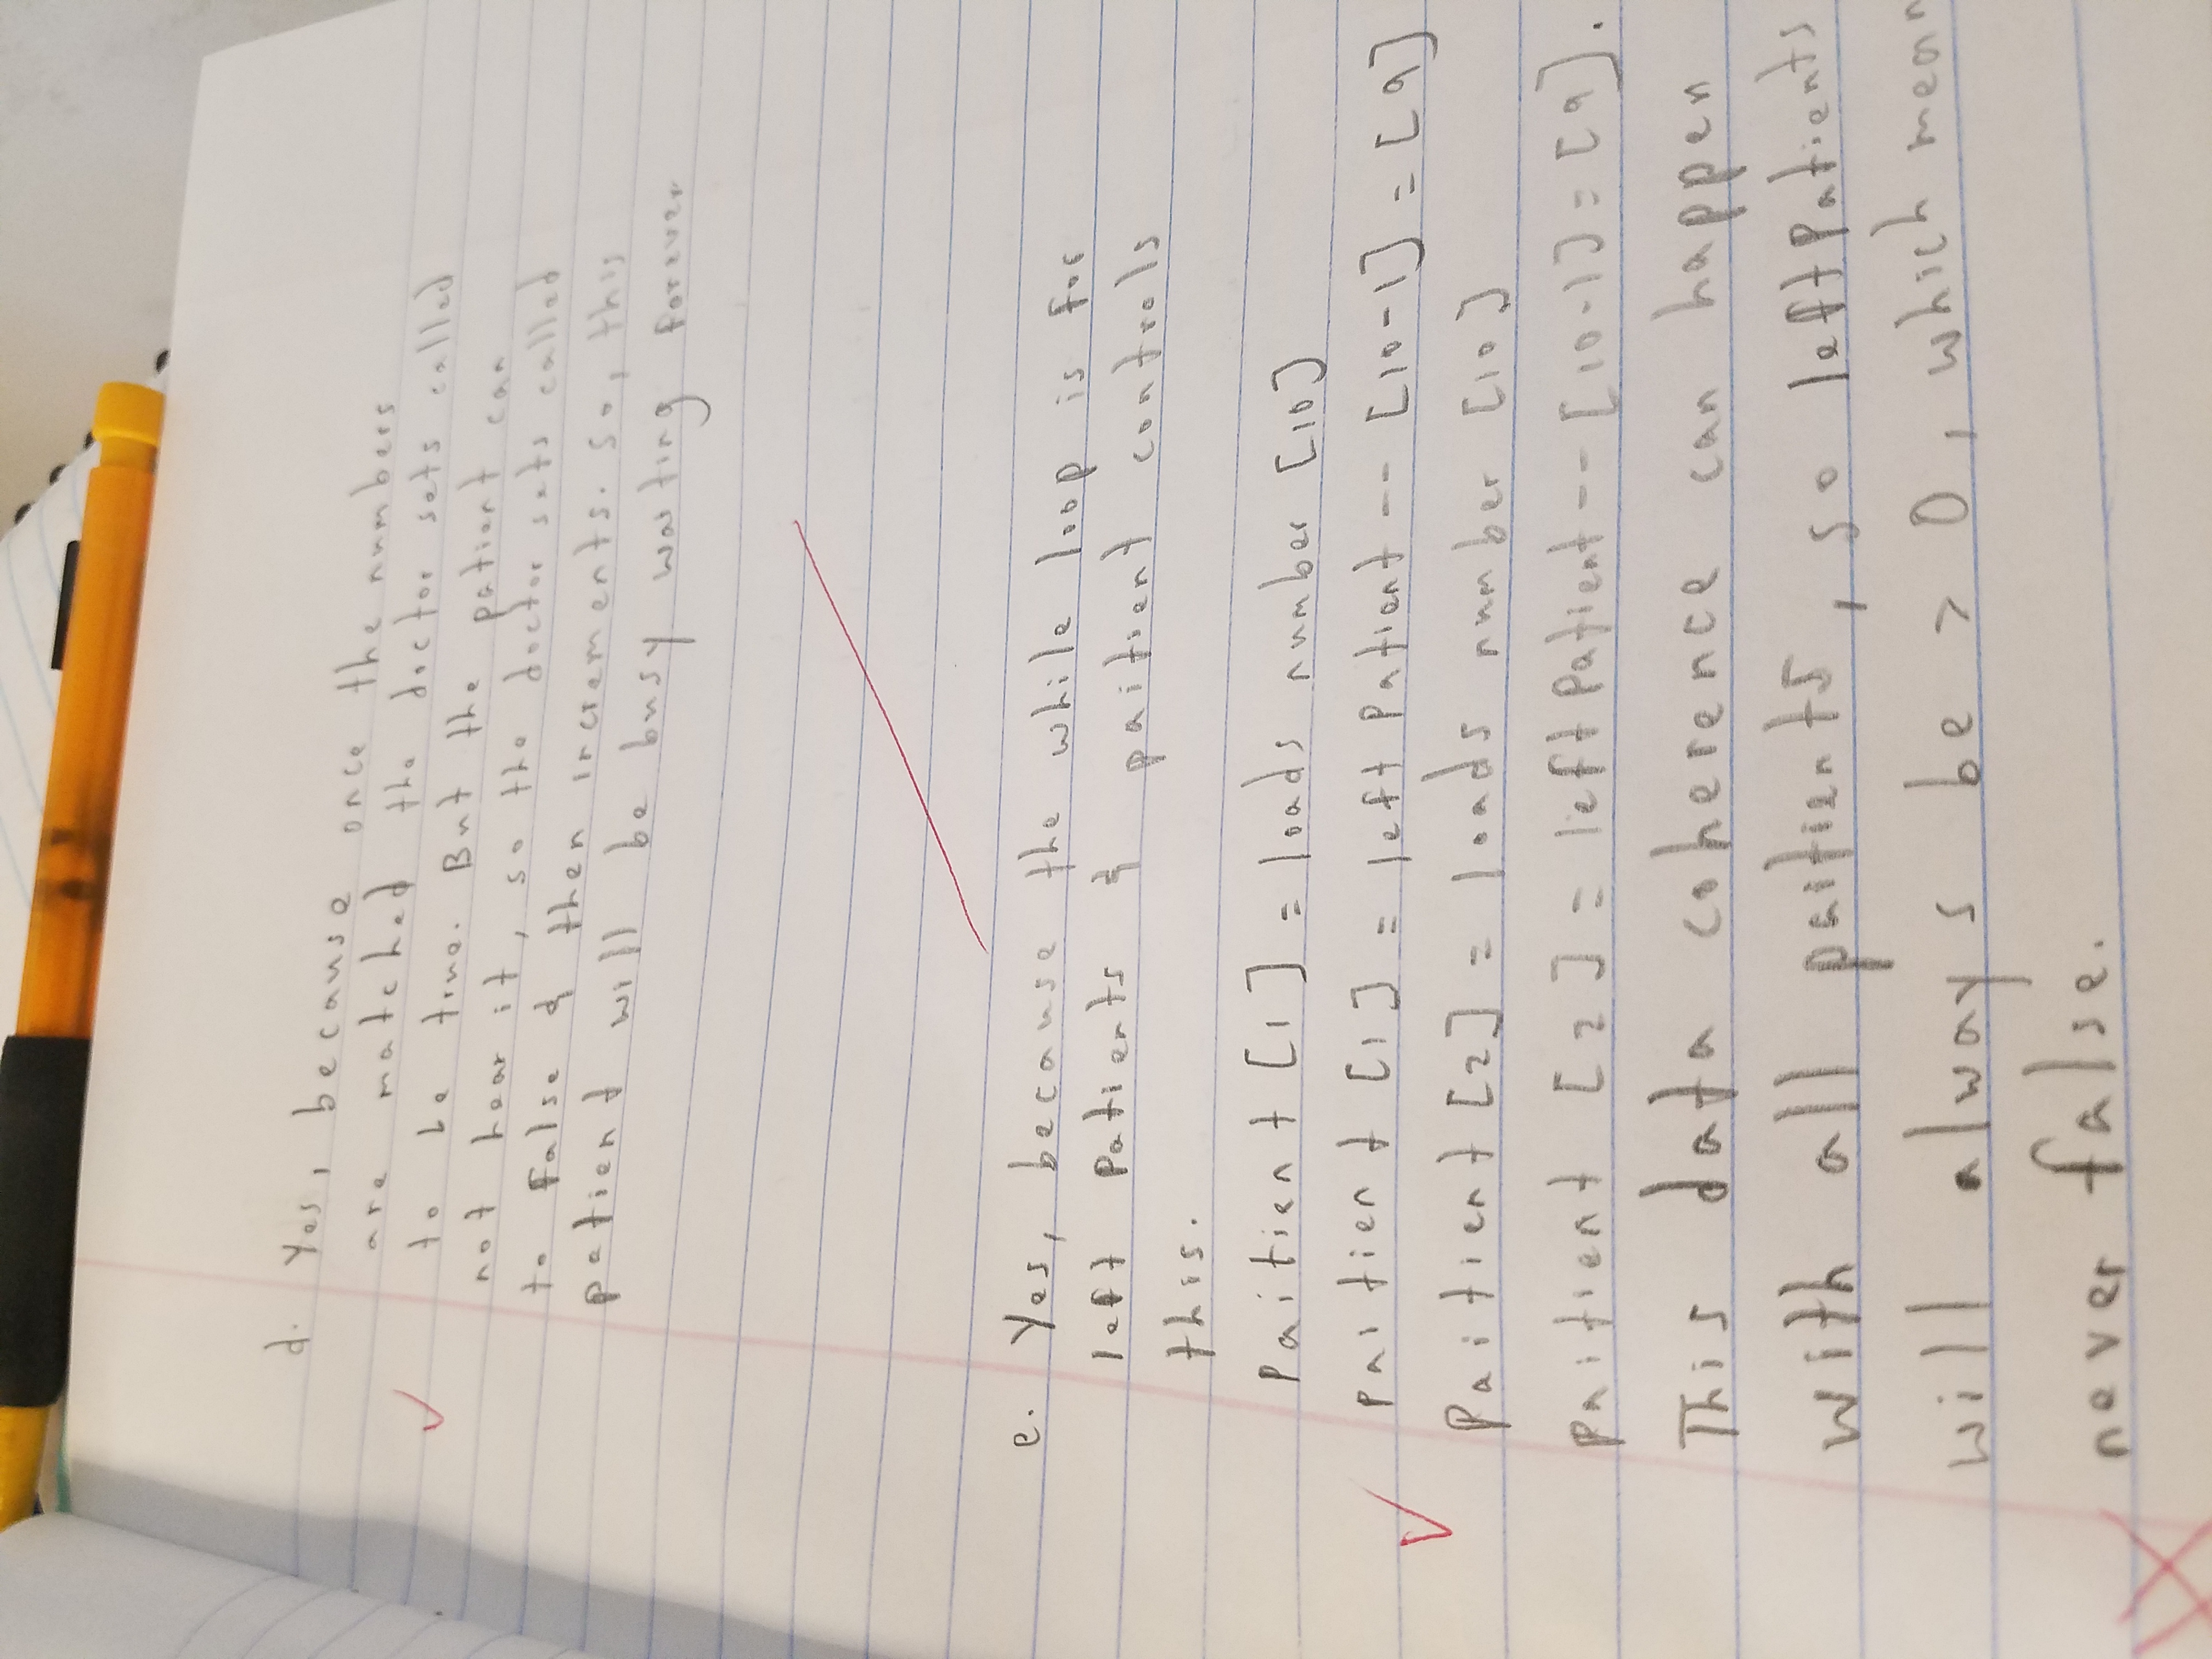 d. Yes, because once the numbers
are matched the doctor sets called
to be true. But the patient can
not hear it, so the doctor sets called
to false & then increments. So, this
patient will be busy waiting forever
e. Yes, because the while loop is for
left patients & paitient controls
this.
Paitient [1] = loads number [10]
paitient [1] = left Patient -- [10-1] = [9]
Paitient [2] = loads number [10]
paitient [2] = left Patient -- [10-1] = [9].
This data coherence can happen
with all paitients, so left Patients
will always be > 0, which mean
never false.